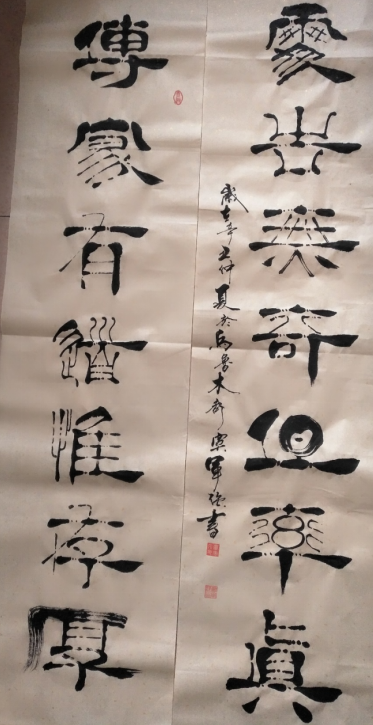 處世無奇但率真
傳家有道惟存厚
歲在辛丑仲夏於烏魯木齊軍強書